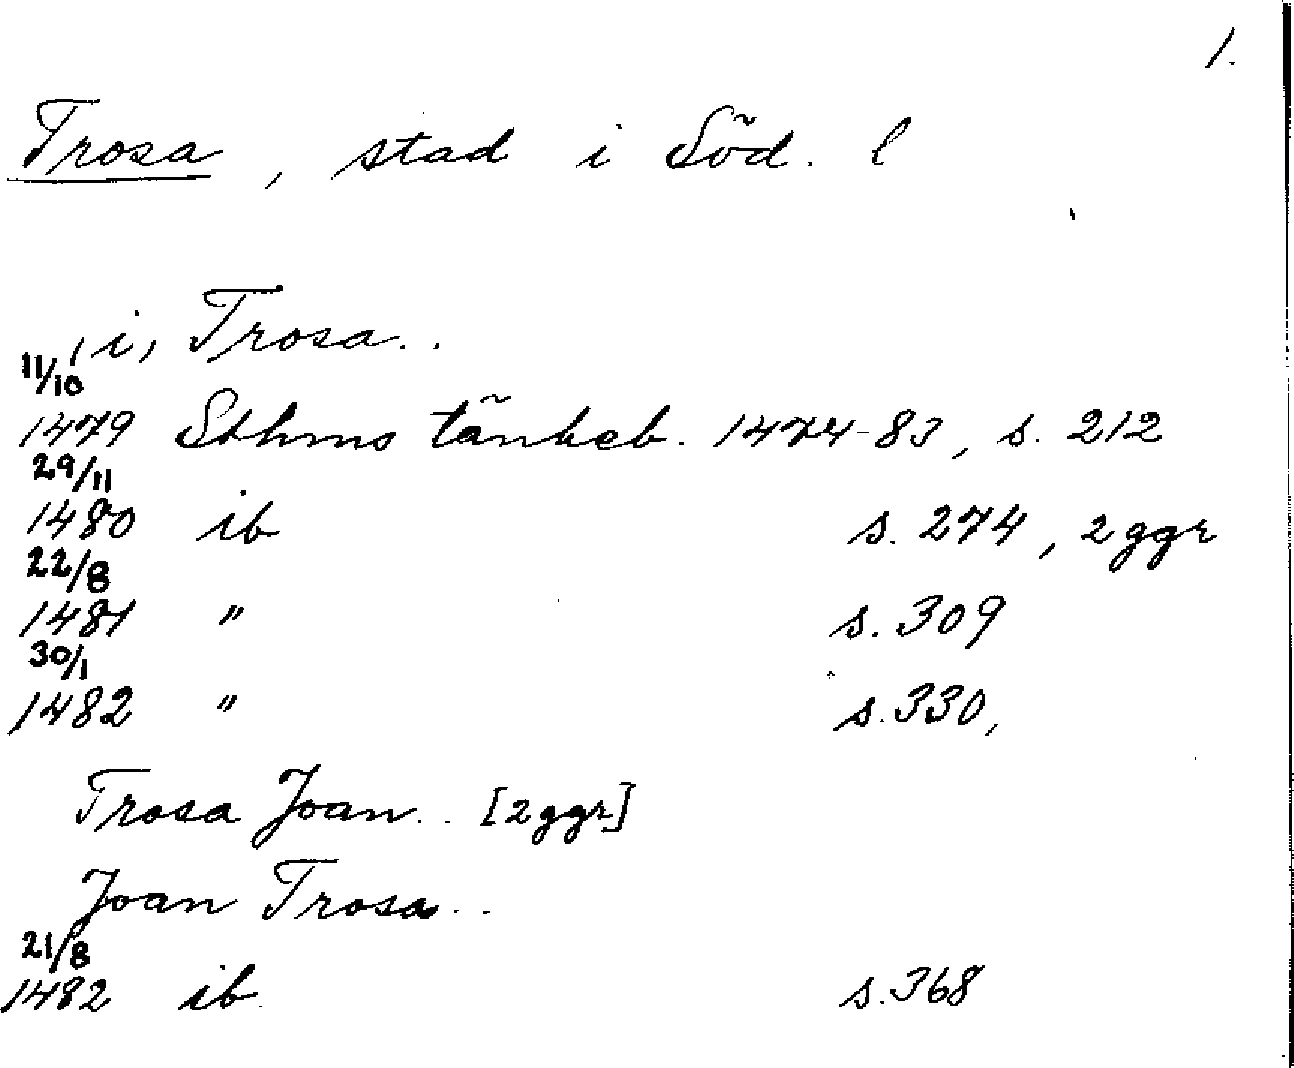 1.
Trosa, stad i Söd. l
, i, Trosa..
11/10
1479 Sthms tänkeb. 1474-83, s. 212
29/11
1480 ib s. 274, 2 ggr
22/8
1481 " s. 309
30/1
1482 " s. 330,
Trosa Joan.. [2 ggr]
Joan Trosa..
21/8
1482 ib. s. 368